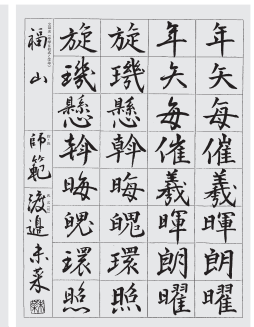 年矢每催羲暉朗曜
年矢每催羲暉朗曜
旋璣懸斡晦魄環照
旋璣懸斡晦魄環照
福山 師範 渡邉未菜